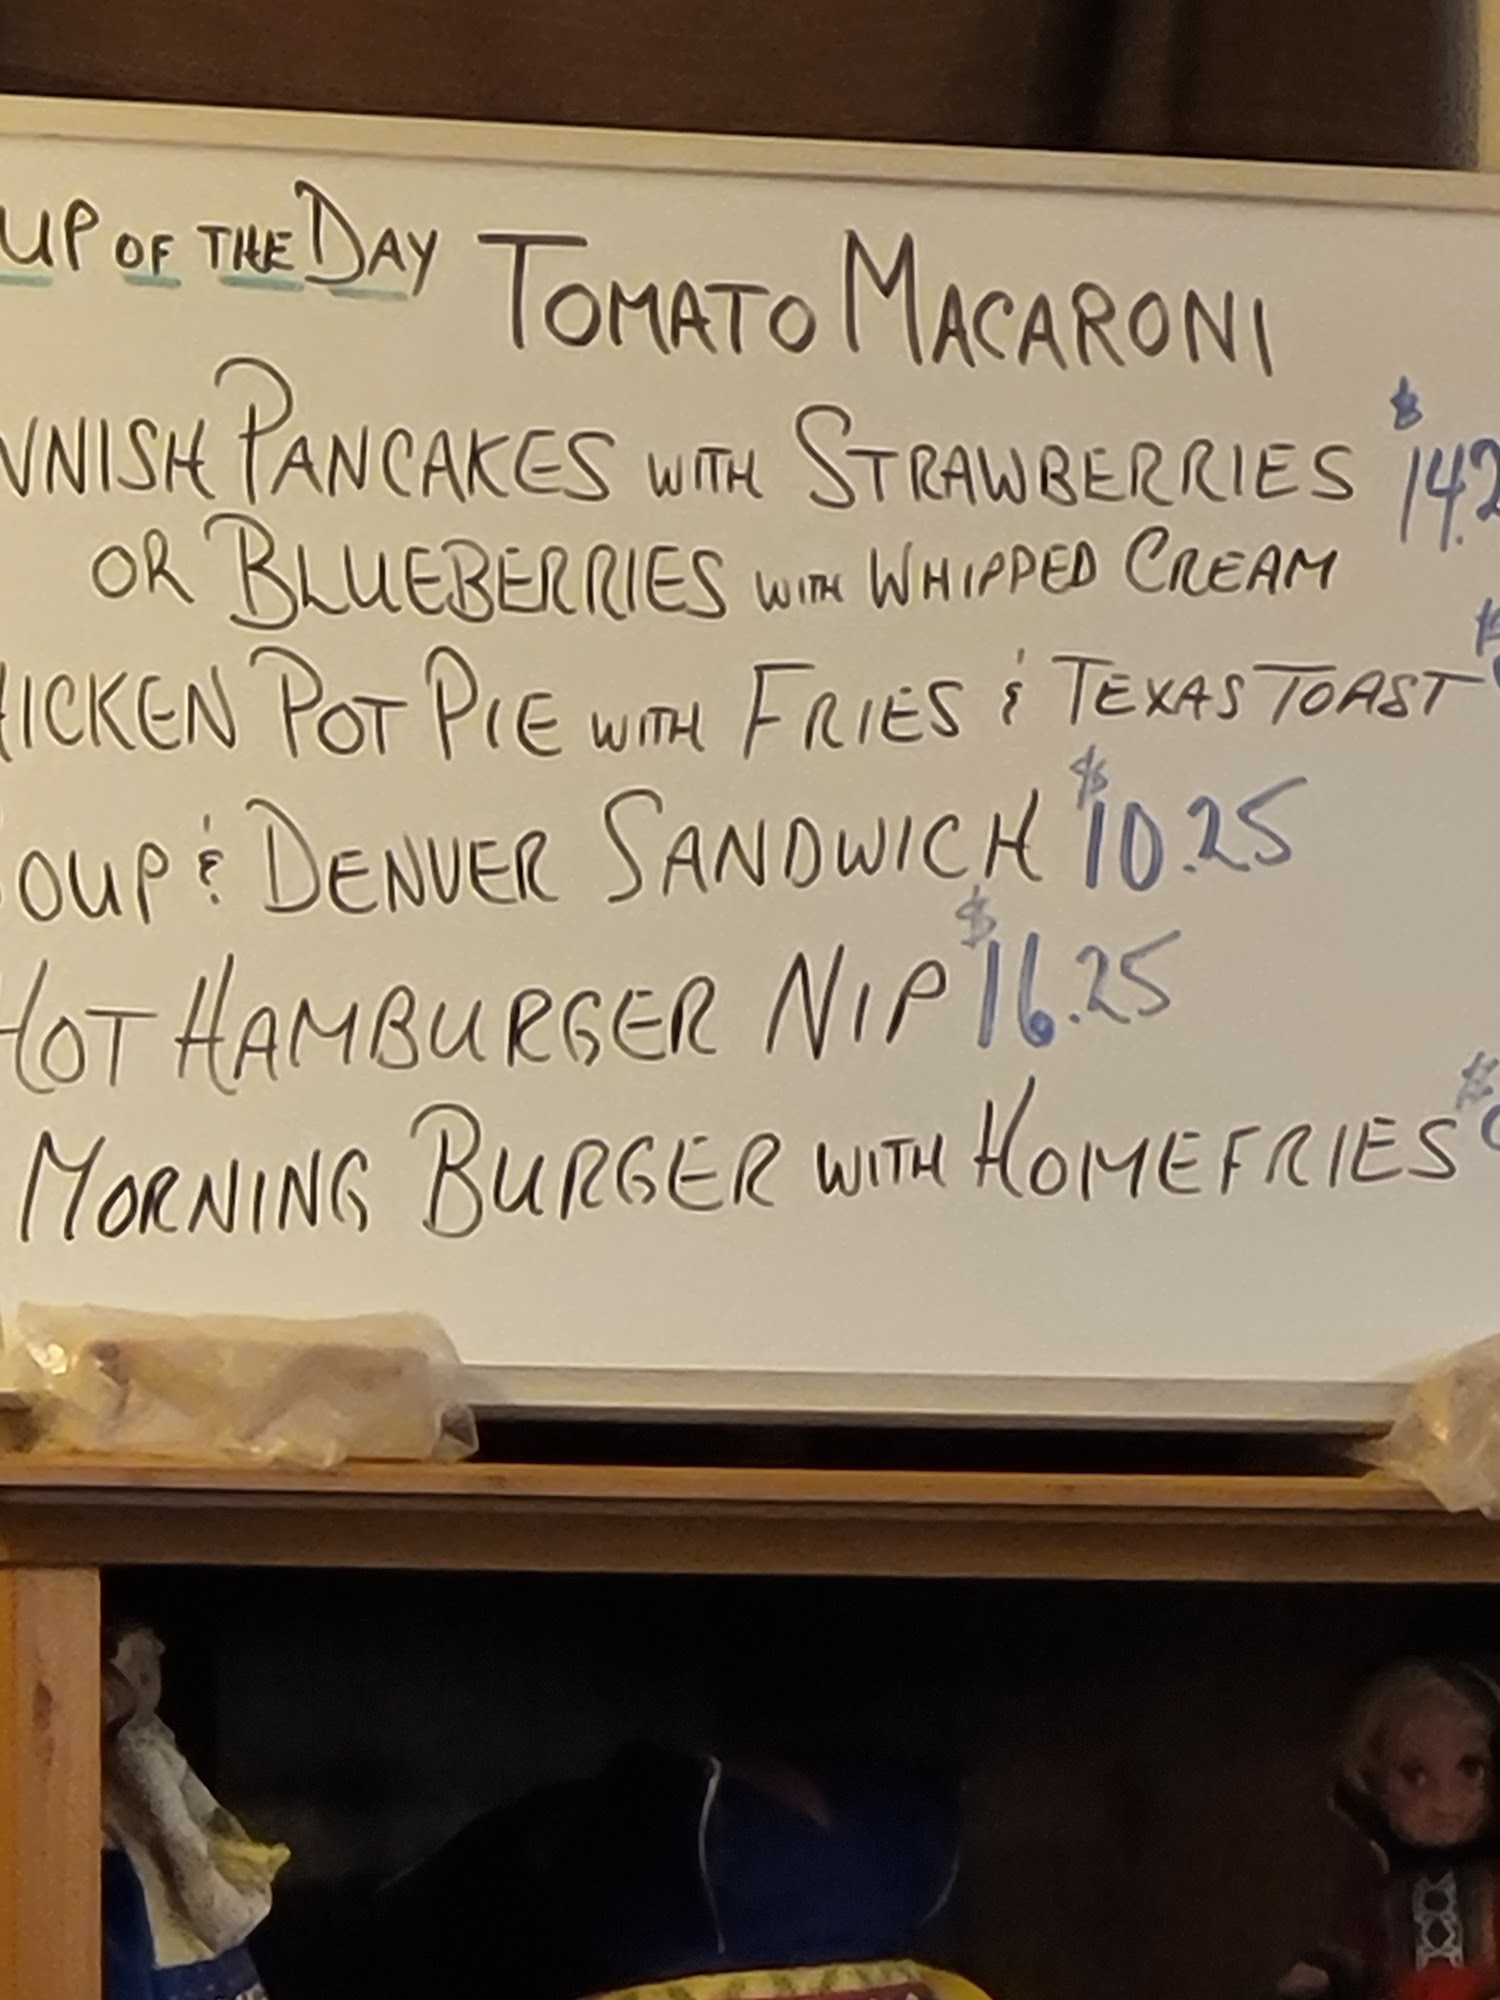 UP OF THE DAY TOMATO MACARONI
NNISH PANCAKES WITH STRAWBERRIES $14.2
OR BLUEBERRIES WITH WHIPPED CREAM
HICKEN POT PIE WITH FRIES & TEXAS TOAST $
SOUP & DENVER SANDWICH $10.25
HOT HAMBURGER NIP $16.25
MORNING BURGER WITH HOMEFRIES $